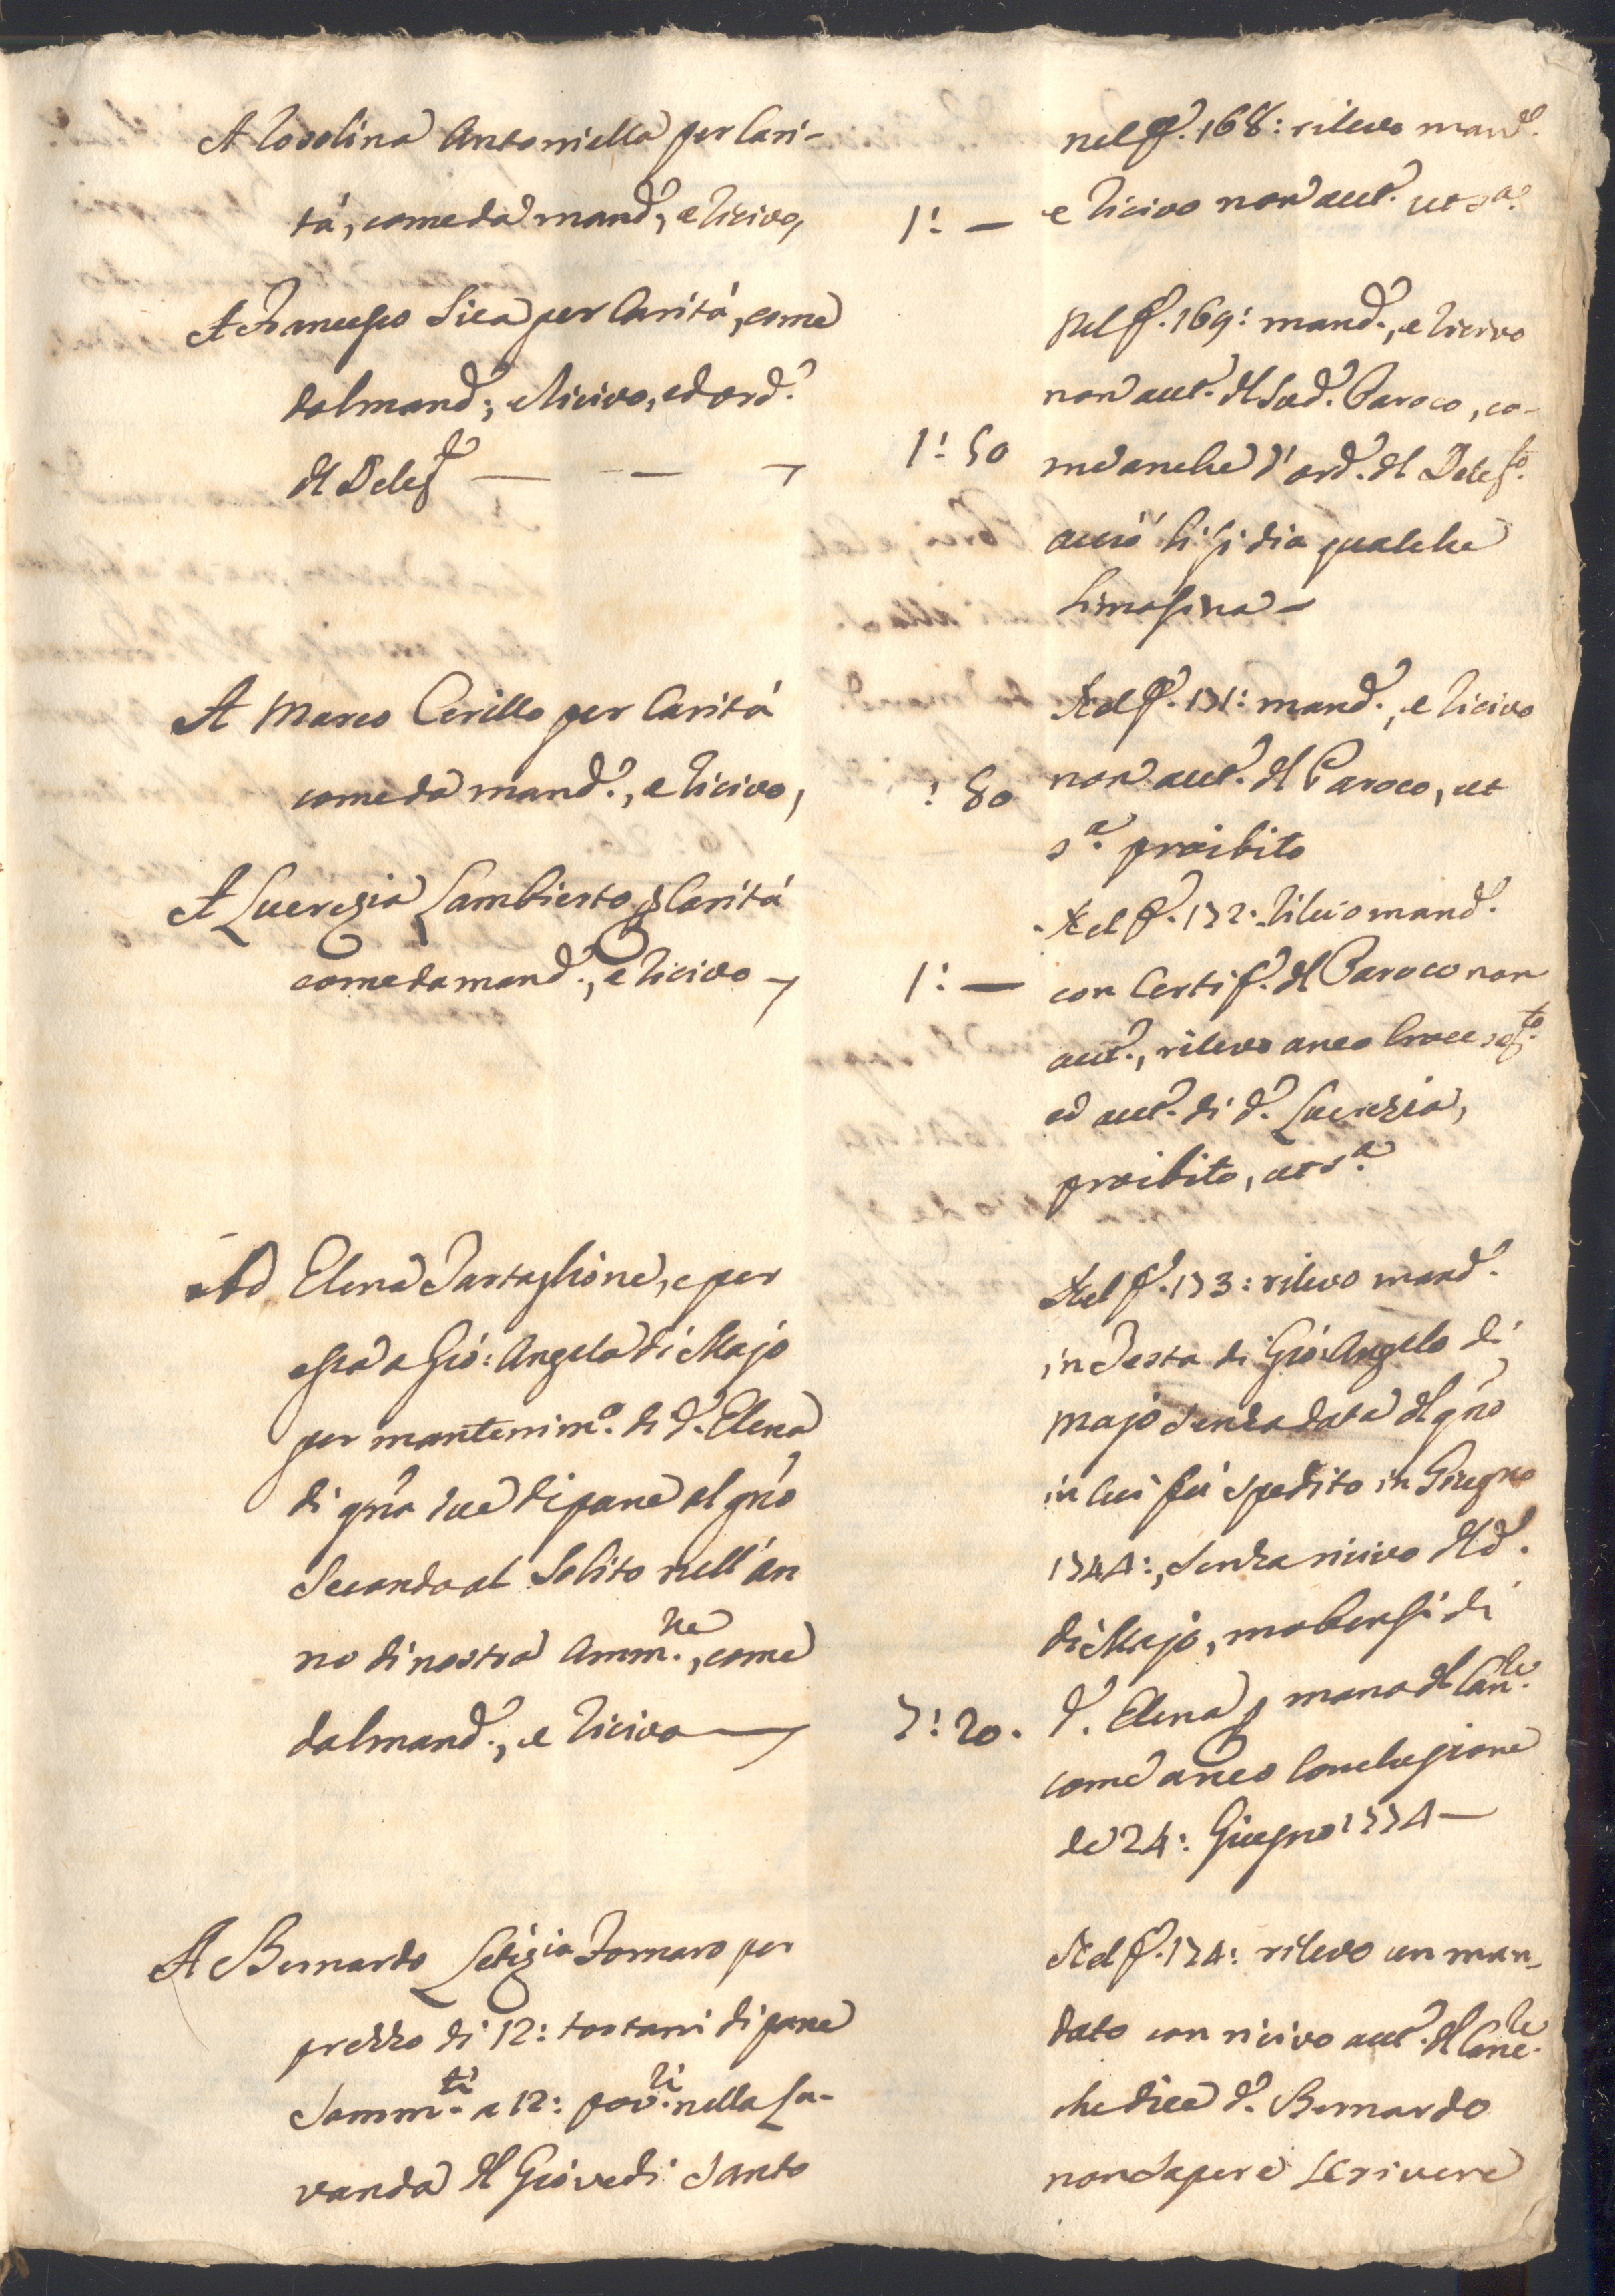 A Rosolina Antoniella per Cari-
tà, come da mand.º, e ricivo,
1: —
nel f.º 168: rilevo mand.º
e ricivo non aut.º ut s.ª
A Francesco Sica per Carità, come
dal mand.º, e ricivo, ed ord.º
del Deleg.to — — —
1: 50
Nel f.º 169: mand.º, e ricivo
non aut.º del Sud.º Paroco, co-
me anche l'ord.º del Deleg.to
acciò li si dia qualche
limosina —
A Marco Cirillo per Carità
come da mand.º, e ricivo,
: 50
Nel f.º 171: mand.º, e ricivo
non aut.º del Paroco, ut
s.ª proibito
A Lucrezia Lambierto p Carità
come da mand.º, e ricivo —
1: —
Nel f.º 172: rilevo mand.º
con Certif.º del Paroco non
aut.º, rilevo anco Croce seg.to
ed aut.º di d.º Lucrezia,
proibito, ut s.ª
Ad Elena Tartaglione, e per
essa a Gio: Angelo di Majo
per mantenim.º di d.º Elena
di gra due di pane al g.no
Secondo al Solito nell'an
no di nostra Amm.ne, come
dal mand.º, e ricivo —
7: 20.
Nel f.º 173: rilevo mand.º
in Testa di Gio: Angelo di
Majo senza data del g.no
in cui fu spedito in Giugno
1744:, senza ricivo del d.º
di Majo, ma bensì di
d.º Elena p mano del Can.le
come anco Conclusione
de 24: Giugno 1774 —
A Bernardo Letizia Fornaro per
prezzo di 12: tortani di pane
Somm.ti a 12: pov.ri nella La-
vanda del Giovedi Santo
Nel f.º 174: rilevo un man-
dato con ricivo aut.º del Canc.le
che dice d.º Bernardo
non sapere scrivere